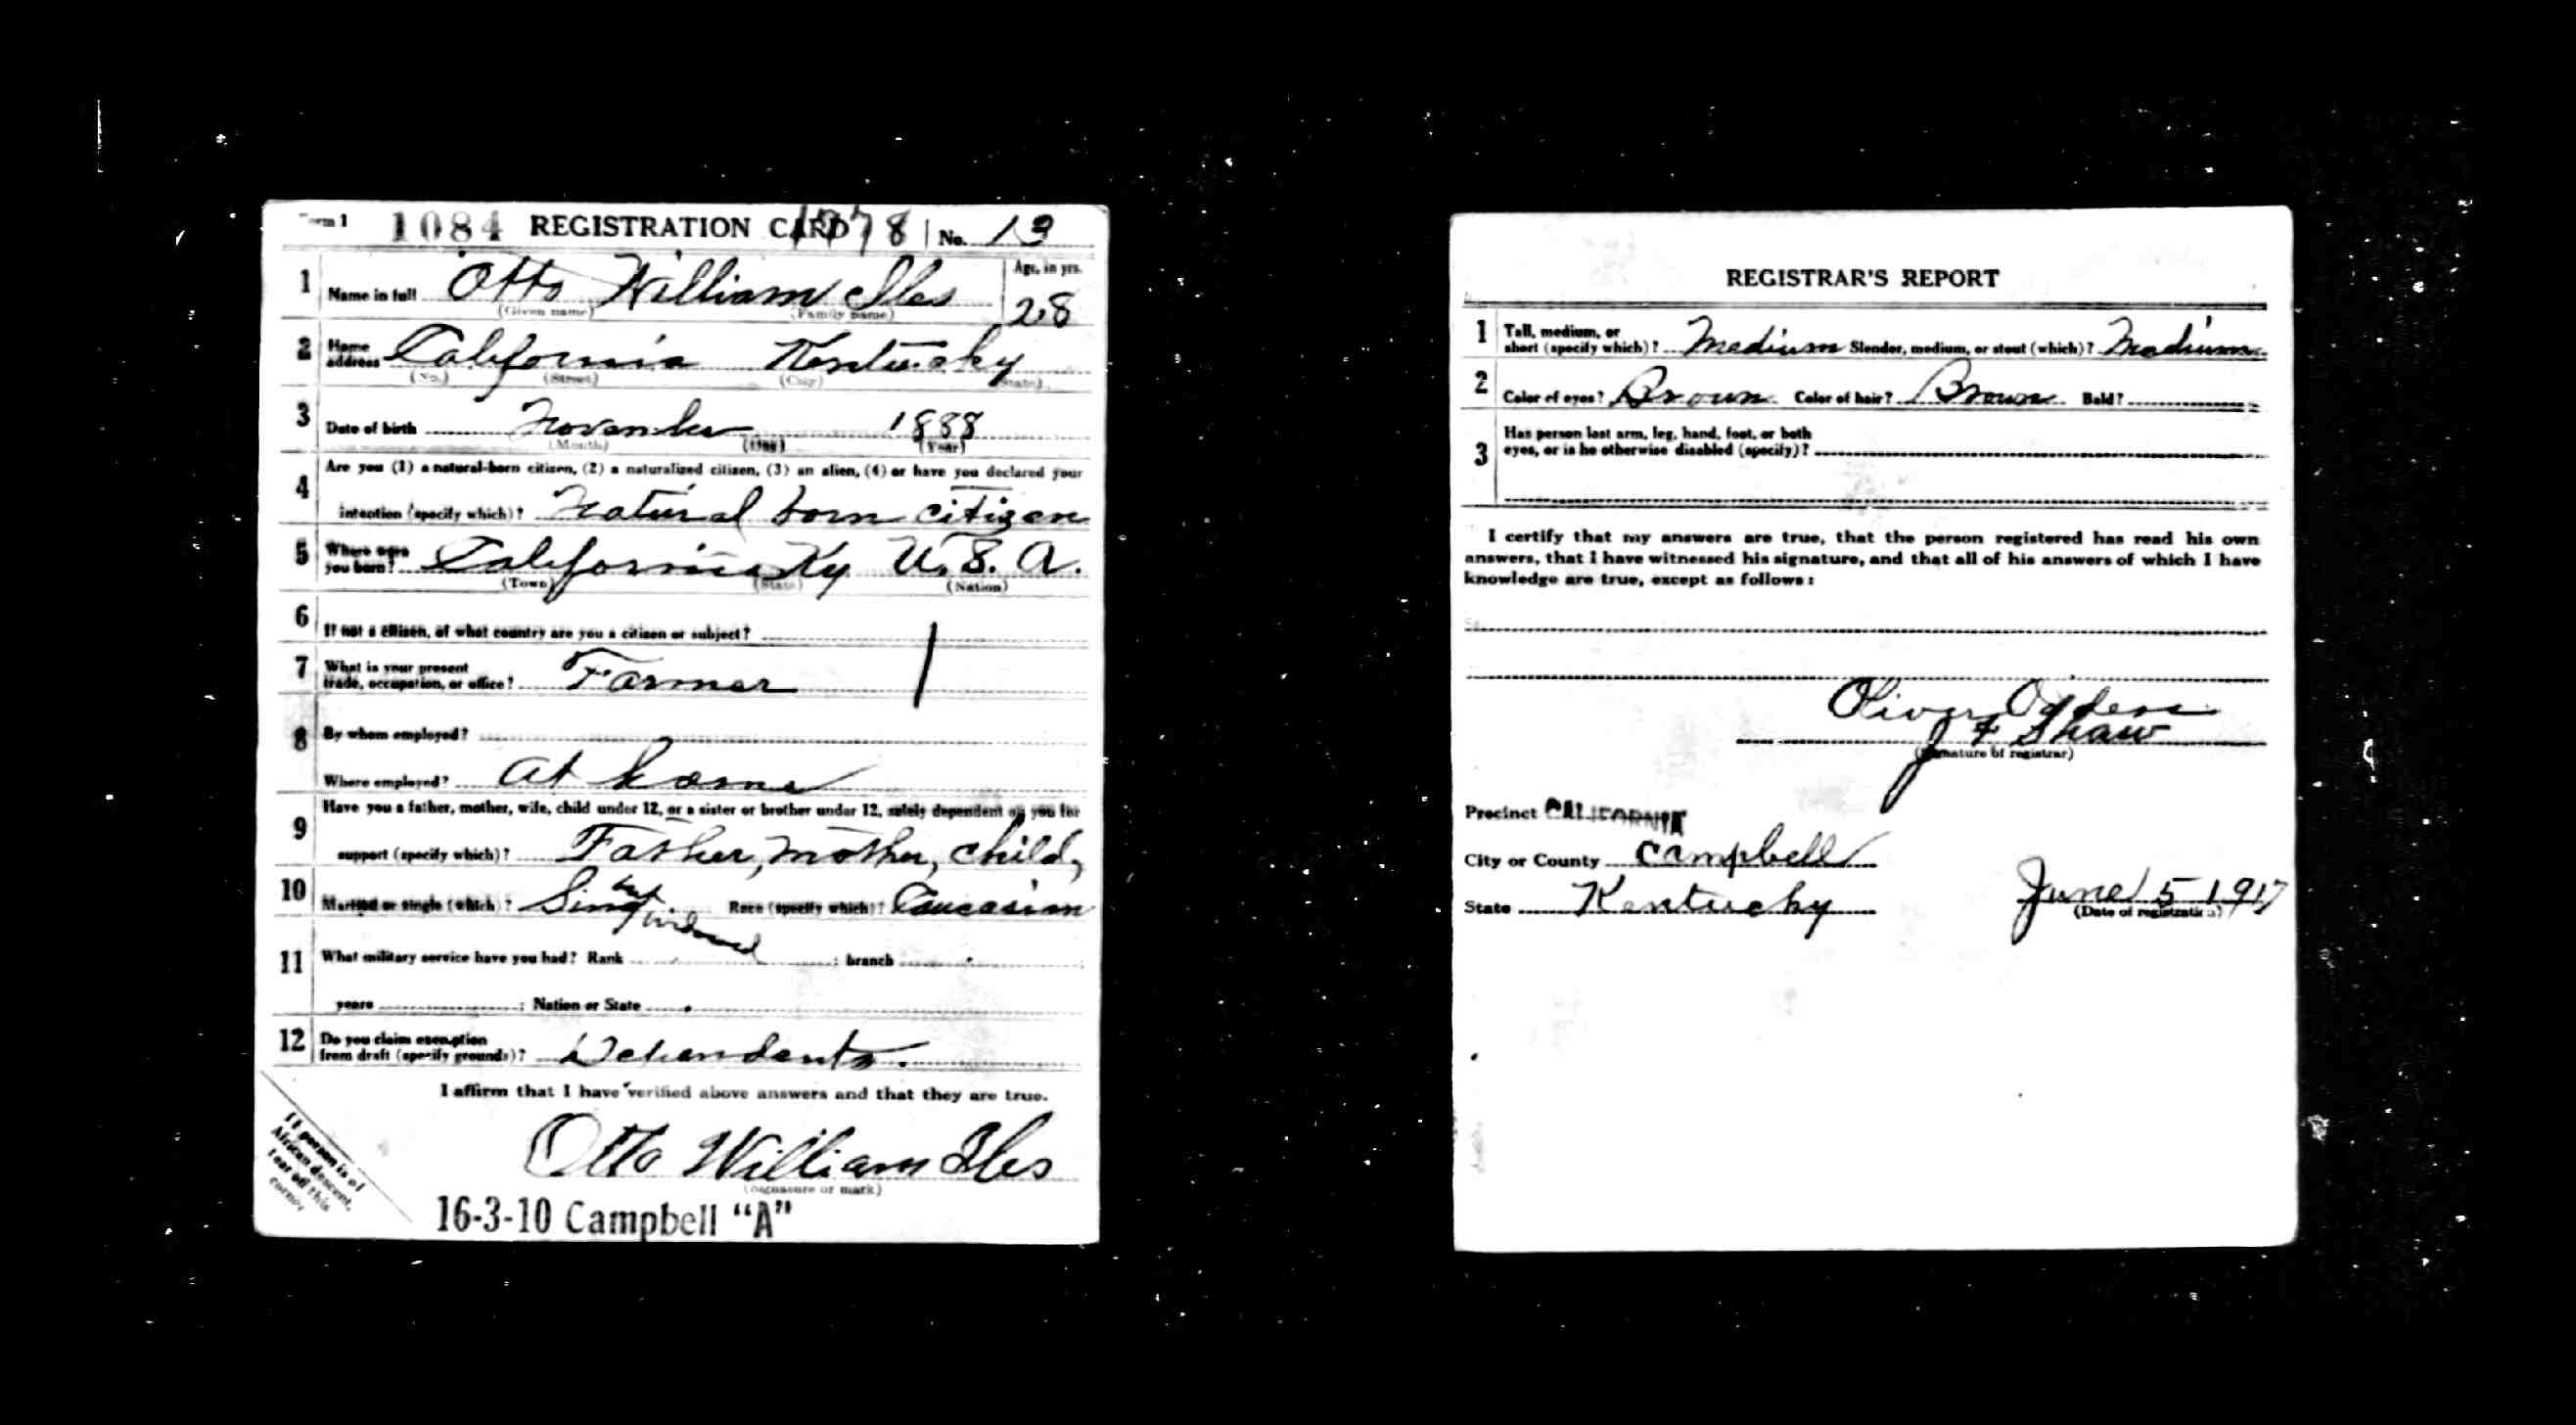 Form 1 1084 REGISTRATION CARD 1378 No. 13
1 Name in full Otto William Iles Age, in yrs.
(Given name) (Family name) 28
2 Home address California Kentucky
(No.) (Street) (City) (State)
3 Date of birth November 1888
(Month) (Day) (Year)
4 Are you (1) a natural-born citizen, (2) a naturalized citizen, (3) an alien, (4) or have you declared your
intention (specify which)? Natural born citizen
5 Where were you born? California Ky U. S. A.
(Town) (State) (Nation)
6 If not a citizen, of what country are you a citizen or subject?
7 What is your present
trade, occupation, or office? Farmer
8 By whom employed?
Where employed? at home
9 Have you a father, mother, wife, child under 12, or a sister or brother under 12, solely dependent on you for
support (specify which)? Father, mother, child,
10 Married or single (which)? Single Race (specify which)? Caucasian
11 What military service have you had? Rank ; branch
years ; Nation or State
12 Do you claim exemption
from draft (specify grounds)? Dependents.
I affirm that I have verified above answers and that they are true.
Otto William Iles
(Signature or mark)
If person is of
African descent,
tear off this
corner
16-3-10 Campbell "A"
REGISTRAR'S REPORT
1 Tall, medium, or
short (specify which)? Medium Slender, medium, or stout (which)? Medium
2 Color of eyes? Brown Color of hair? Brown Bald?
3 Has person lost arm, leg, hand, foot, or both
eyes, or is he otherwise disabled (specify)?
I certify that my answers are true, that the person registered has read his own
answers, that I have witnessed his signature, and that all of his answers of which I have
knowledge are true, except as follows:
Oliver Ogden
J F Shaw
(Signature of registrar)
Precinct CALIFORNIA
City or County Campbell
State Kentucky June 5 1917
(Date of registration)